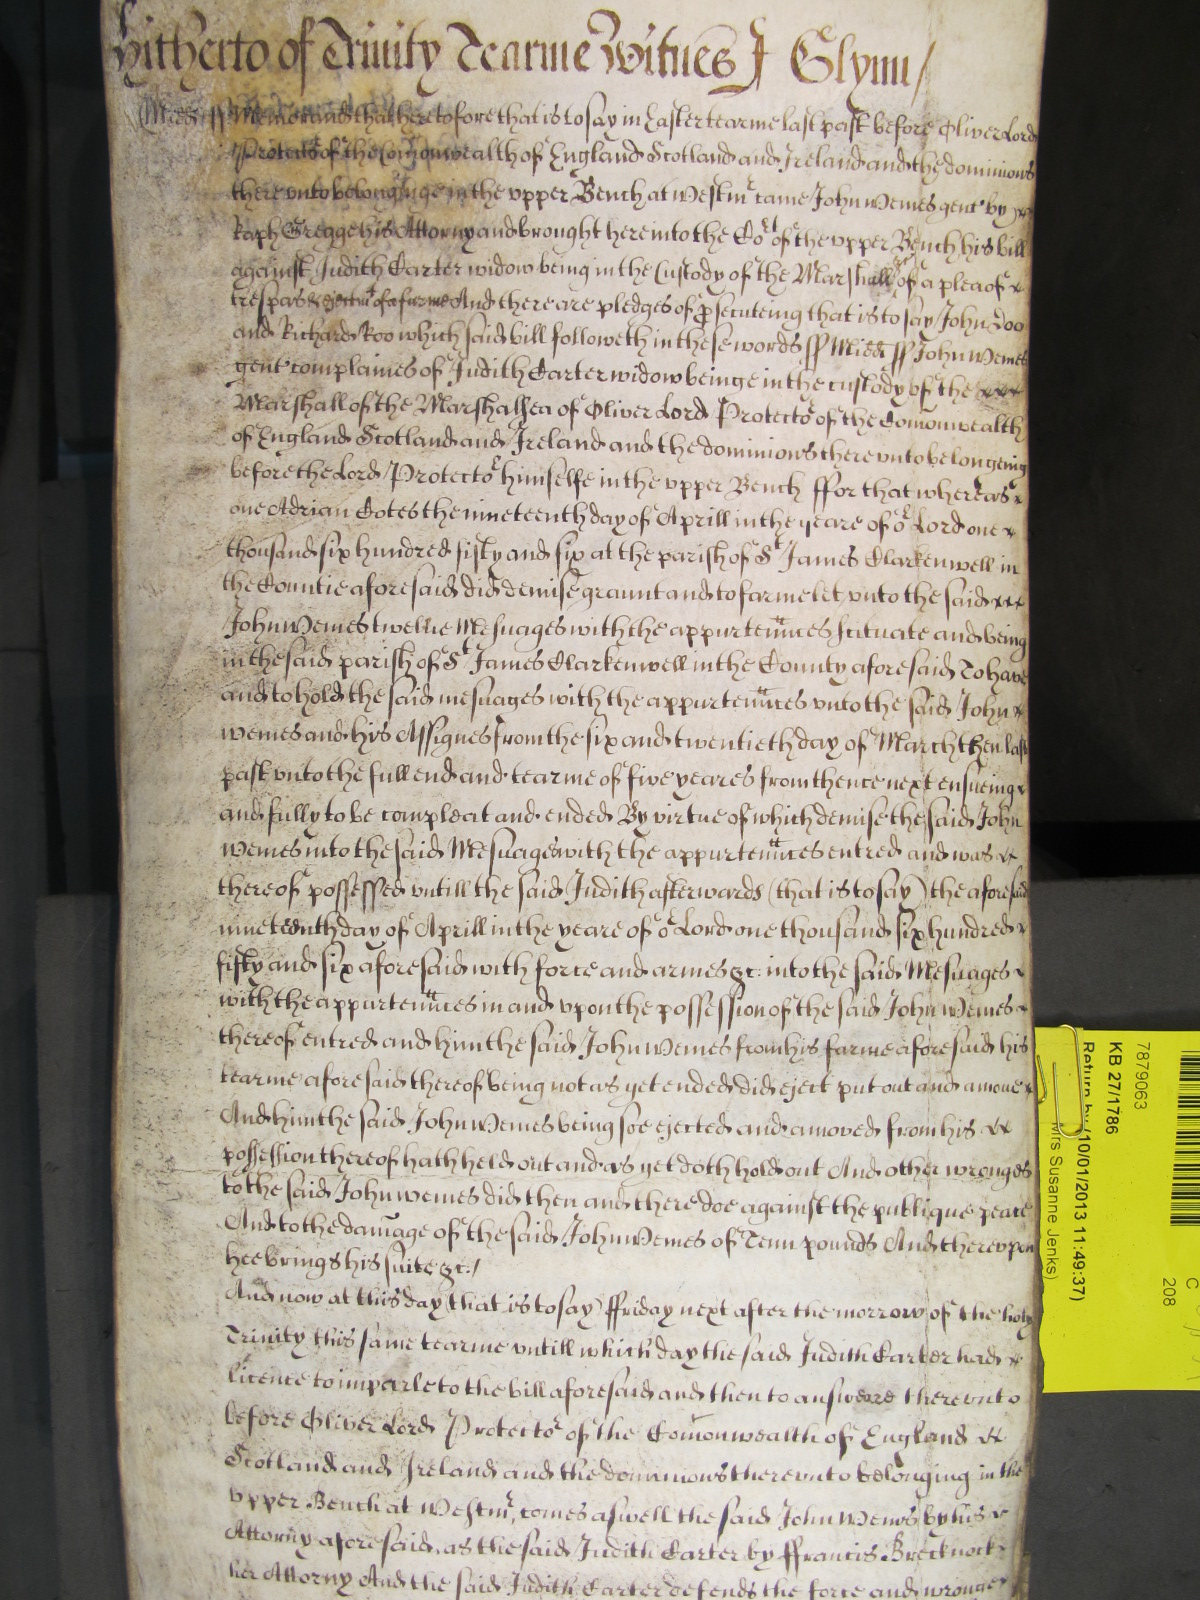 hitherto of Trinity Tearme Witnes J Glynn/
Midd ss Memorand that heretofore that is to say in Easter tearme last past before Oliver Lord
Protector of the Comonwealth of England Scotland and Ireland and the dominions
there unto belonginge in the upper Bench at Westmr came John Wemes gent by
Raph Gregge his Attorny and brought here into the Cort of the upper Bench his bill
against Judith Carter widow being in the Custody of the Marshall of a plea of
trespas & ejectmt of a farme And there are pledges of prosecuteing that is to say John Doo
and Richard Roo which said bill followeth in these words ss Midd ss John Wemes
gent complaines of Judith Carter widow beinge in the custody of the
Marshall of the Marshalsea of Oliver Lord Protector of the Comonwealth
of England Scotland and Ireland and the dominions there unto belongeing
before the Lord Protector himselfe in the upper Bench ffor that whereas
one Adrian Cotes the nineteenth day of Aprill in the yeare of or Lord one
thousand six hundred fifty and six at the parish of St James Clarkenwell in
the Countie aforesaid did demise graunt and to farme let unto the said
John Wemes twelve Mesuages with the appurtennces scituate and being
in the said parish of St James Clarkenwell in the County aforesaid To have
and to hold the said mesuages with the appurtennces unto the said John
Wemes and his Assignes from the six and twentieth day of March then last
past unto the full end and tearme of five yeares from thence next ensueing
and fully to be compleat and ended By virtue of which demise the said John
Wemes into the said Mesuages with the appurtennces entred and was
thereof possessed untill the said Judith afterwards (that is to say) the aforesaid
nineteenth day of Aprill in the yeare of or Lord one thousand six hundred
fifty and six aforesaid with force and armes &c: into the said Mesuages
with the appurtennces in and upon the possession of the said John Wemes
thereof entred and him the said John Wemes from his farme aforesaid his
tearme aforesaid thereof being not as yet ended did eject put out and amove
And him the said John Wemes being soe ejected and amoved from his
possession thereof hath held out and as yet doth hold out And other wronges
to the said John Wemes did then and there doe against the publique peace
And to the damage of the said John Wemes of Tenn pounds And thereupon
hee brings his suite &c:/
And now at this day (that is to say) ffriday next after the morrow of the holy
Trinity this same tearme untill which day the said Judith Carter had
licence to imparle to the bill aforesaid and then to answeare thereunto
before Oliver Lord Protector of the Comonwealth of England
Scotland and Ireland and the dominions thereunto belonging in the
upper Bench at Westmr, comes aswell the said John Wemes by his
Attorny aforesaid, as the said Judith Carter by ffrancis Brecknock
her Attorny And the said Judith Carter defends the force and wronge
7879063
KB 27/1786
Return by (10/01/2013 11:49:37)
Mrs Susanne Jenks)
C
208